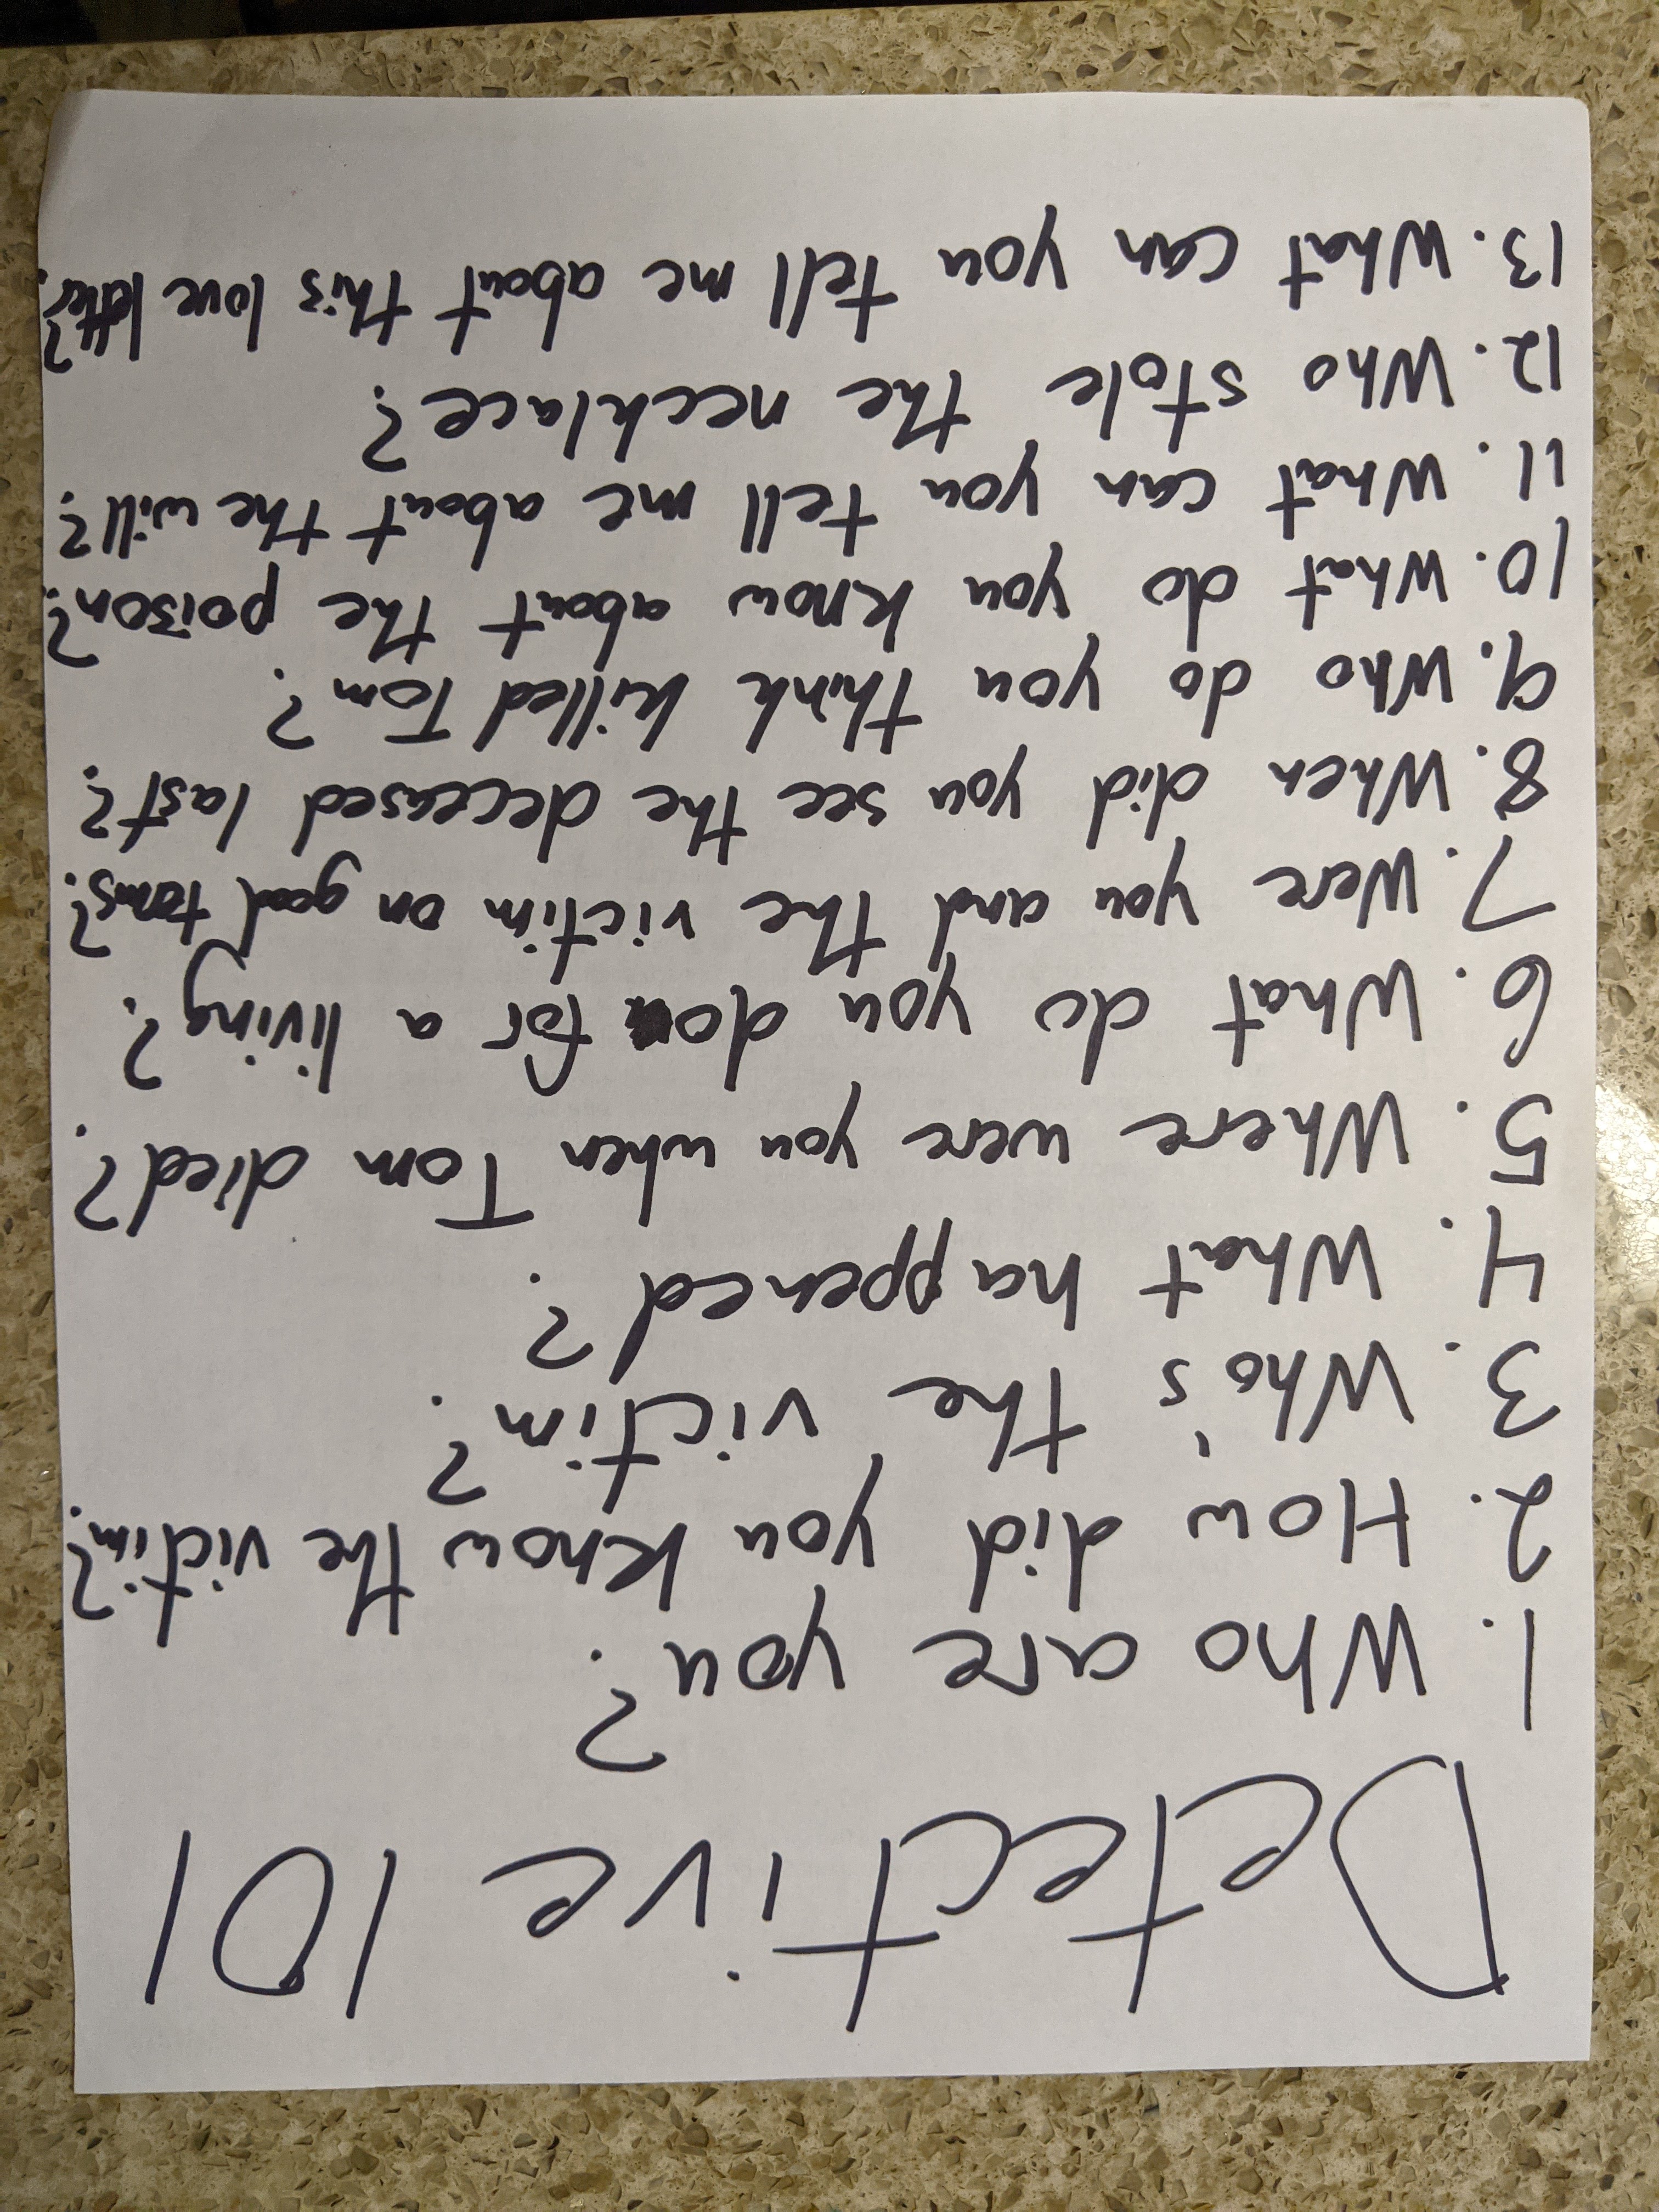 Detective 101
1. Who are you?
2. How did you know the victim?
3. Who's the victim?
4. What happened?
5. Where were you when Tom died?
6. What do you do for a living?
7. Were you and the victim on good terms?
8. When did you see the deceased last?
9. Who do you think killed Tom?
10. What do you know about the poison?
11. What can you tell me about the will?
12. Who stole the necklace?
13. What can you tell me about this love letter?